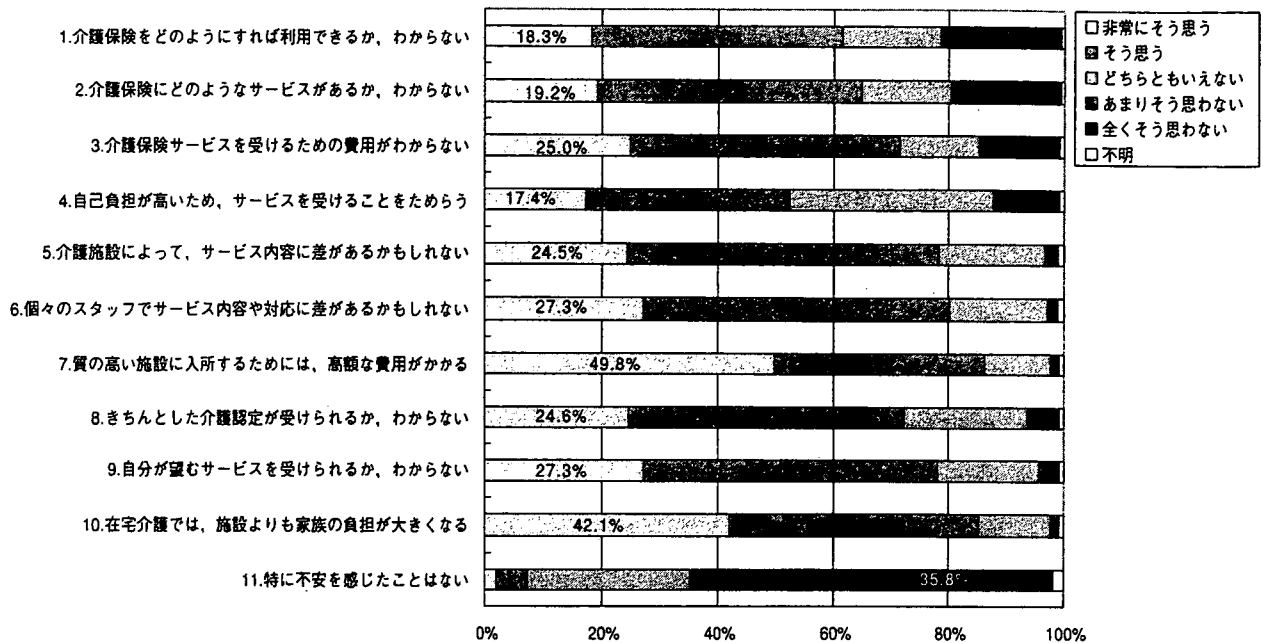 1.介護保険をどのようにすれば利用できるか，わからない
18.3%
2.介護保険にどのようなサービスがあるか，わからない
19.2%
3.介護保険サービスを受けるための費用がわからない
25.0%
4.自己負担が高いため，サービスを受けることをためらう
17.4%
5.介護施設によって，サービス内容に差があるかもしれない
24.5%
6.個々のスタッフでサービス内容や対応に差があるかもしれない
27.3%
7.質の高い施設に入所するためには，高額な費用がかかる
49.8%
8.きちんとした介護認定が受けられるか，わからない
24.6%
9.自分が望むサービスを受けられるか，わからない
27.3%
10.在宅介護では，施設よりも家族の負担が大きくなる
42.1%
11.特に不安を感じたことはない
35.8%
0% 20% 40% 60% 80% 100%
非常にそう思う
そう思う
どちらともいえない
あまりそう思わない
全くそう思わない
不明